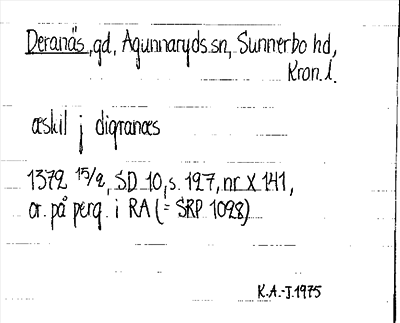 Deranäs, gd, Agunnaryds sn, Sunnerbo hd,
Kron. l.
æskil j digranæs
1372 15/2, SD 10, s. 127, nr X 141,
or. på perg. i RA (= SRP 1028)
K.A.-J. 1975